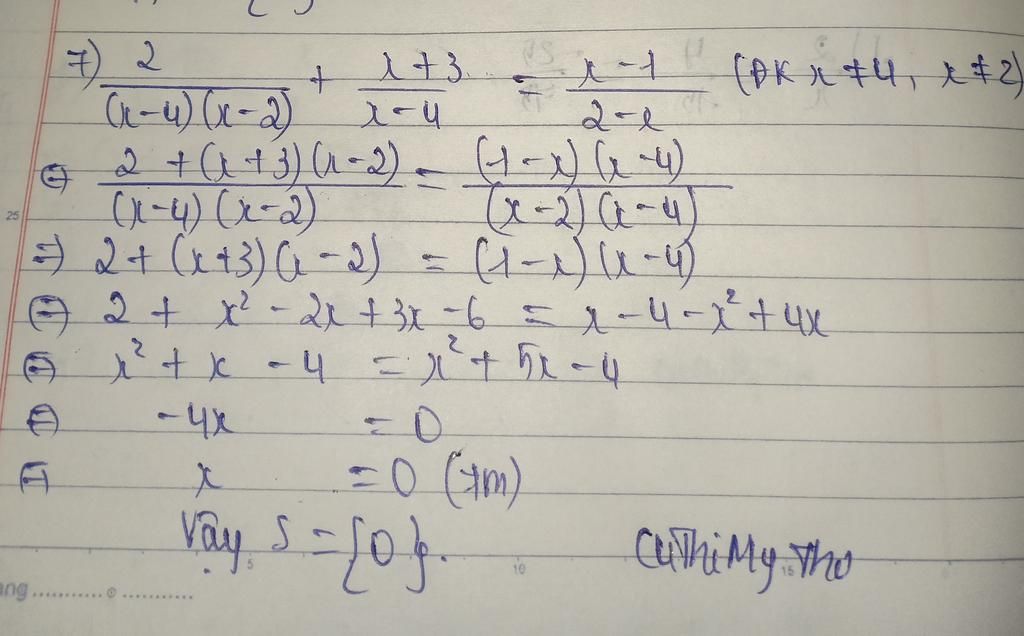 7) 2/((x-4)(x-2)) + (x+3)/(x-4) = (x-1)/(2-x) (ĐK x≠4, x≠2)
⇔ (2+(x+3)(x-2))/((x-4)(x-2)) = ((1-x)(x-4))/((x-2)(x-4))
⇒ 2+(x+3)(x-2) = (1-x)(x-4)
⇔ 2 + x² - 2x + 3x - 6 = x - 4 - x² + 4x
⇔ x² + x - 4 = x² + 5x - 4
⇔ -4x = 0
⇔ x = 0 (tm)
Vậy S = {0}.
CuThiMyTho
25
5 10 15